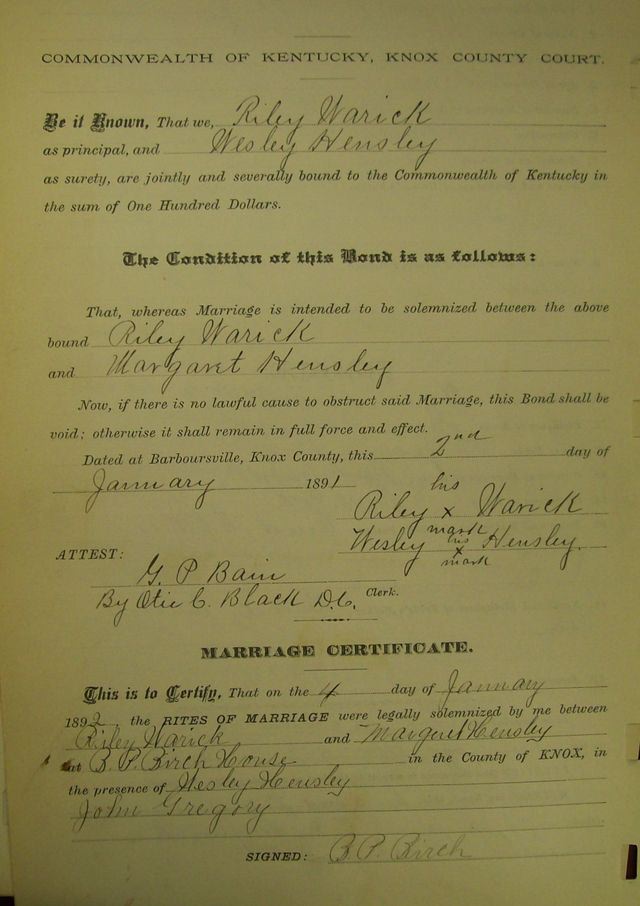 COMMONWEALTH OF KENTUCKY, KNOX COUNTY COURT.
Be it Known, That we, Riley Warick
as principal, and Wesley Hensley
as surety, are jointly and severally bound to the Commonwealth of Kentucky in
the sum of One Hundred Dollars.
The Condition of this Bond is as follows:
That, whereas Marriage is intended to be solemnized between the above
bound Riley Warick
and Margaret Hensley
Now, if there is no lawful cause to obstruct said Marriage, this Bond shall be
void; otherwise it shall remain in full force and effect.
Dated at Barboursville, Knox County, this 2nd day of
January 1891
his
Riley x Warick
mark
his
Wesley x Hensley.
mark
ATTEST:
G. P. Bain
Clerk.
By Otie C. Black D.C.
MARRIAGE CERTIFICATE.
This is to Certify, That on the 4 day of January
1892, the RITES OF MARRIAGE were legally solemnized by me between
Riley Warick and Margaret Hensley
at B. P. Birch House in the County of KNOX, in
the presence of Wesley Hensley
John Gregory
SIGNED: B. P. Birch